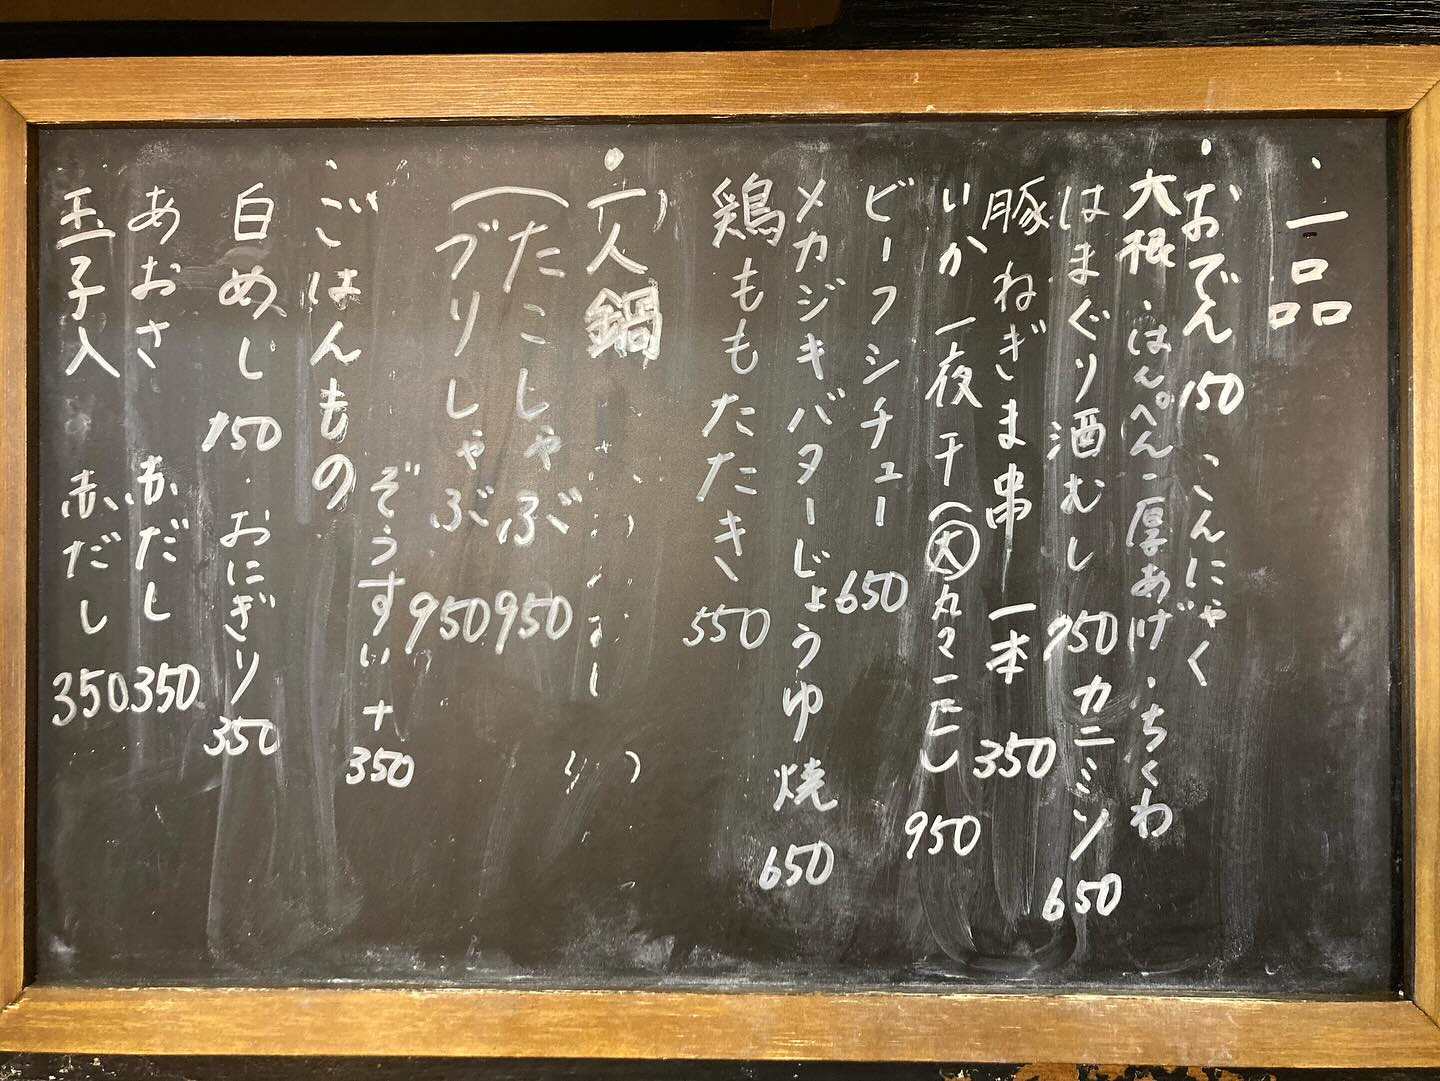 ・一品
・おでん 150 ・こんにゃく
大根・はんぺん・厚あげ・ちくわ
はまぐり酒むし 950 カニミソ 650
豚ねぎま串 一本 350
いか一夜干(大)丸々一匹 950
ビーフシチュー 650
メカジキバターじょうゆ焼 650
鶏ももたたき 550
・一人鍋
たこしゃぶ 950
ブリしゃぶ 950
ぞうすい+350
・ごはんもの
白めし 150・おにぎり 350
あおさ 赤だし 350
玉子入 赤だし 350